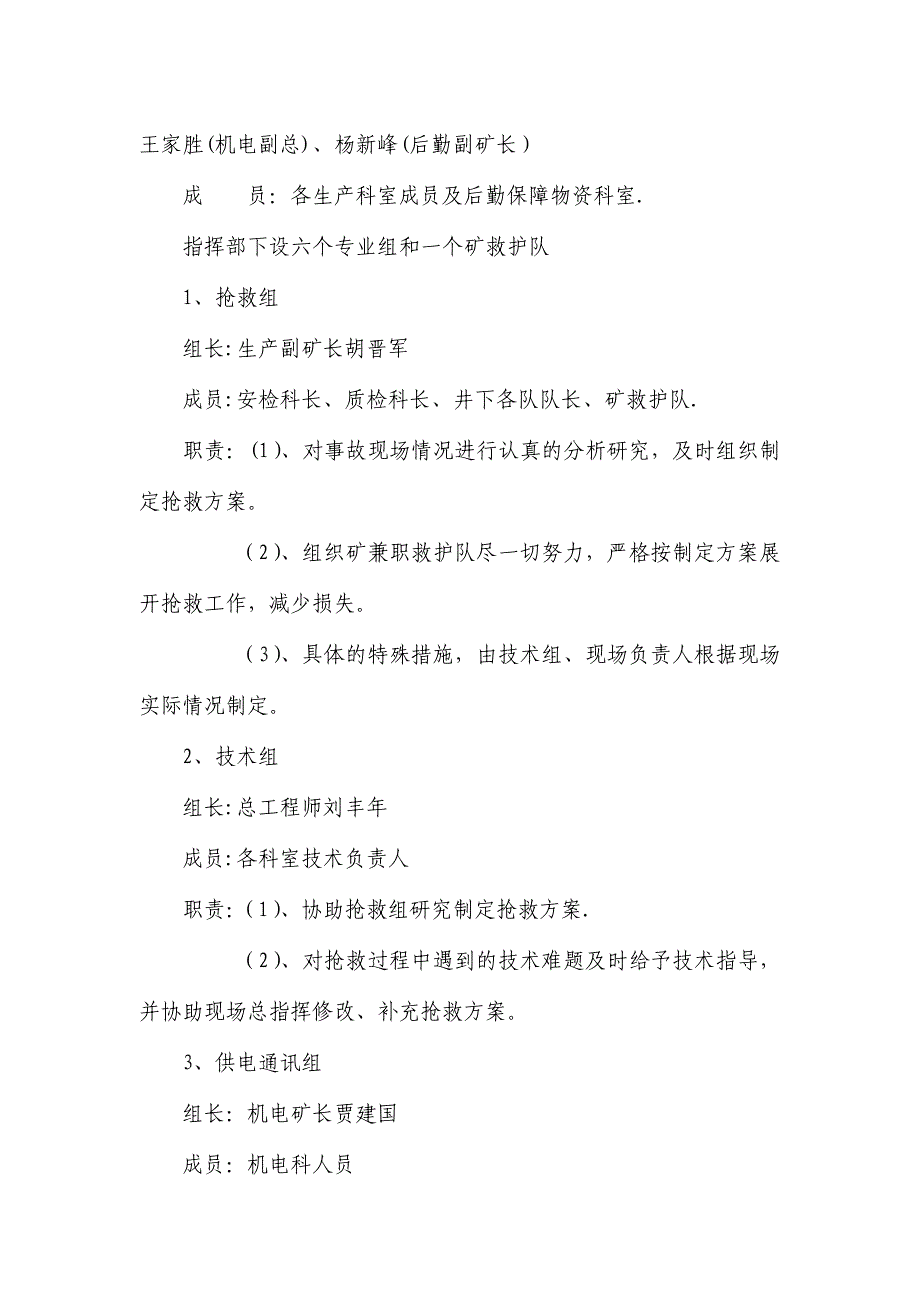 王家胜(机电副总)、杨新峰(后勤副矿长)
成　　员：各生产科室成员及后勤保障物资科室.
指挥部下设六个专业组和一个矿救护队
1、抢救组
组长:生产副矿长胡晋军
成员:安检科长、质检科长、井下各队队长、矿救护队.
职责：(1)、对事故现场情况进行认真的分析研究，及时组织制
定抢救方案。
(2)、组织矿兼职救护队尽一切努力，严格按制定方案展
开抢救工作，减少损失。
(3)、具体的特殊措施，由技术组、现场负责人根据现场
实际情况制定。
2、技术组
组长:总工程师刘丰年
成员:各科室技术负责人
职责：(1)、协助抢救组研究制定抢救方案.
(2)、对抢救过程中遇到的技术难题及时给予技术指导，
并协助现场总指挥修改、补充抢救方案。
3、供电通讯组
组长：机电矿长贾建国
成员：机电科人员